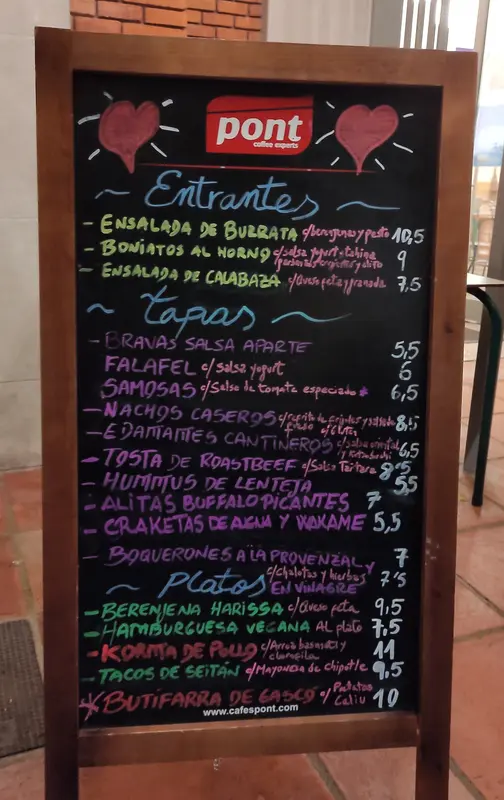 pont
coffee experts
~ Entrantes ~
- ENSALADA DE BURRATA c/berenjenas y pesto 10,5
- BONIATOS AL HORNO c/salsa yogurt-tahina 9
- ENSALADA DE CALABAZA c/Queso feta y granada 7,5
~ tapas ~
- BRAVAS SALSA APARTE 5,5
FALAFEL c/salsa yogurt 6
SAMOSAS c/Salsa de tomate especiado* 6,5
- NACHOS CASEROS 8,5
- EDAMAMES CANTINEROS c/salsa oriental 6,5
- TOSTA DE ROASTBEEF c/Salsa Tártara 8'5
- HUMMUS DE LENTEJA 5,5
- ALITAS BUFFALO PICANTES 7
- CRAKETAS DE ALGA Y WAKAME 5,5
- BOQUERONES A LA PROVENZAL Y 7
c/Chalotas y hierbas EN VINAGRE 7'5
~ Platos
- BERENJENA HARISSA c/Queso feta 9,5
- HAMBURGUESA VEGANA AL plato 7,5
- KORMA DE POLLO c/Arroz basmati y 11
- TACOS DE SEITÁN c/Mayonesa de chipotle 9,5
* BUTIFARRA DE GASCÓ c/Patatas
Caliu 10
www.cafespont.com